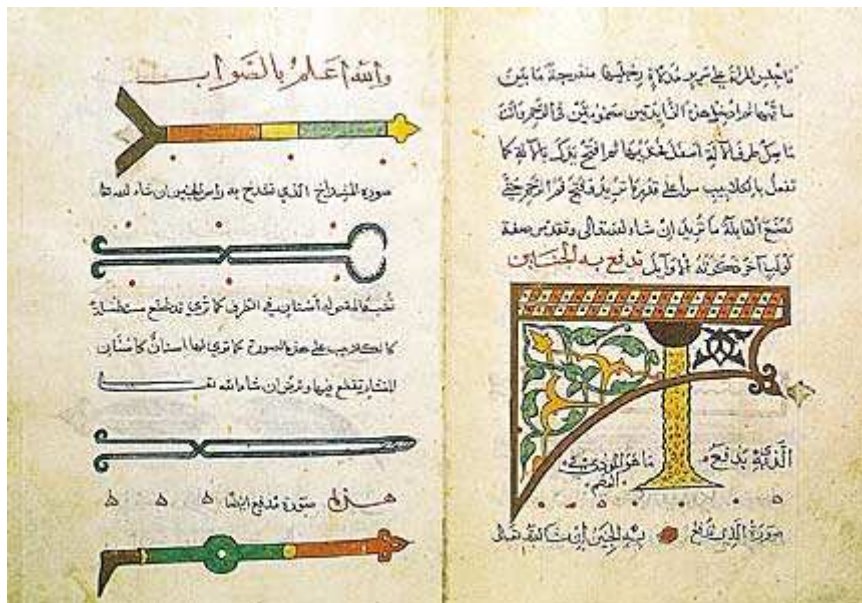 فاجلس المراة على سرير مدلاة رجليها منفرجة ما بين
ساقيها ثم ادخل هذين الزايدتين مضمومتين في الرحم وانت
ماسك طرف الآلة اسفل فخذيها ثم افتح يدك بالآلة كما
تفعل بالكلاليب سوا على قدر ما تريد فتح فم الرحم حتى
تصنع القابلة ما تريد ان شاء الله تعالى وتقدس صفة
لولب آخر ذكرته الاوايل تدفع به الجنين
الذي يدفع ما هو
صورة الذي يدفع به الجنين ان شا الله تعالى
والله اعلم بالصواب
صورة المشداخ الذي تشدخ به راس الجنين ان شاء الله تعا
تشبه المقص له اسنان في الطرف كما ترى قد يصنع مستطيلا
كالكلاليب على هذه الصورة كما ترى لها اسنان كاسنان
المنشار يقطع بها وترض ان شاء الله
هذه صورة مدفع ايضا